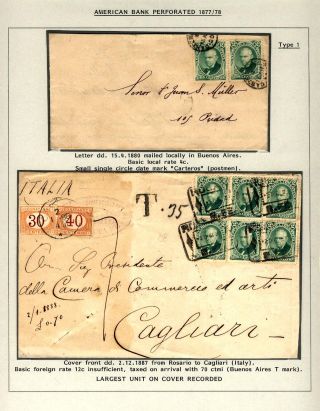 AMERICAN BANK PERFORATED 1877/78
Type 1
Senor Dn Juan S. Müller
105 Piedad
Letter dd. 15.4.1880 mailed locally in Buenos Aires.
Basic local rate 4c.
Small single circle date mark "Carteros" (postmen).
ITALIA
30 40
T. 35
On. Sig. Presidente
della Camera di Commercio ed arti
2/1.1888
£ 0.70
Cagliari
Cover front dd. 2.12.1887 from Rosario to Caglieri (Italy).
Basic foreign rate 12c insufficient, taxed on arrival with 70 ctmi (Buenos Aires T mark).
LARGEST UNIT ON COVER RECORDED